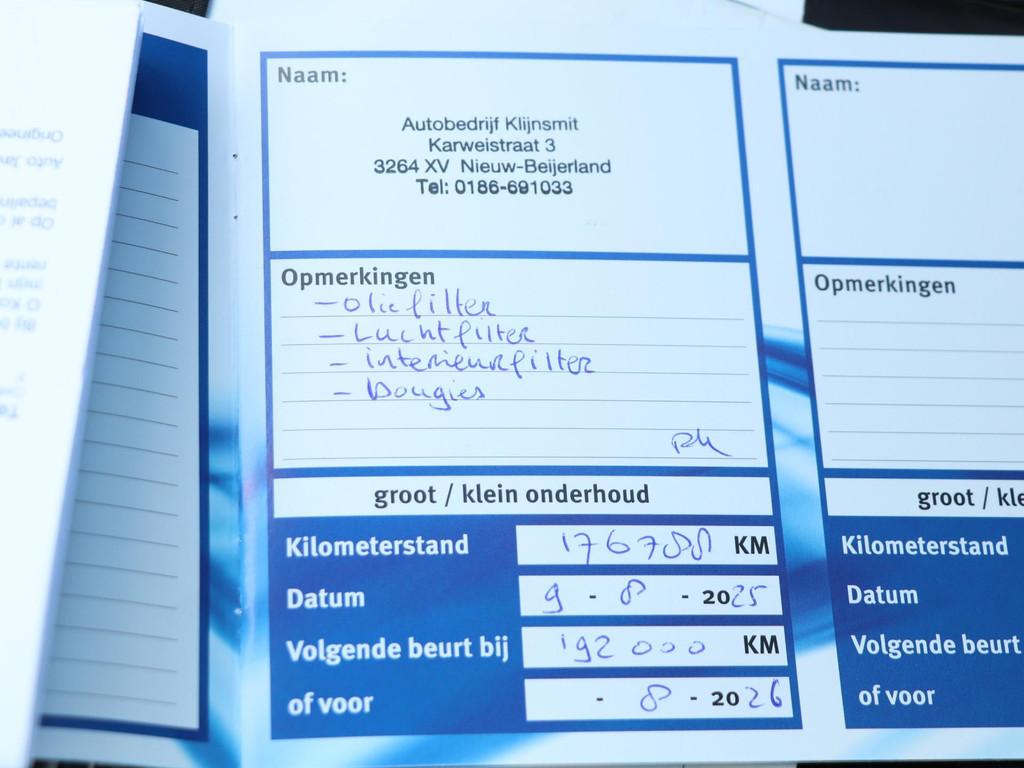 Naam:
Autobedrijf Klijnsmit
Karweistraat 3
3264 XV Nieuw-Beijerland
Tel: 0186-691033
Opmerkingen
- oliefilter
- Luchtfilter
- interieurfilter
- Bougies
groot / klein onderhoud
Kilometerstand 176788 KM
Datum 9 - 8 - 2025
Volgende beurt bij 192000 KM
of voor - 8 - 2026
Naam:
Opmerkingen
groot / kle
Kilometerstand
Datum
Volgende beurt
of voor